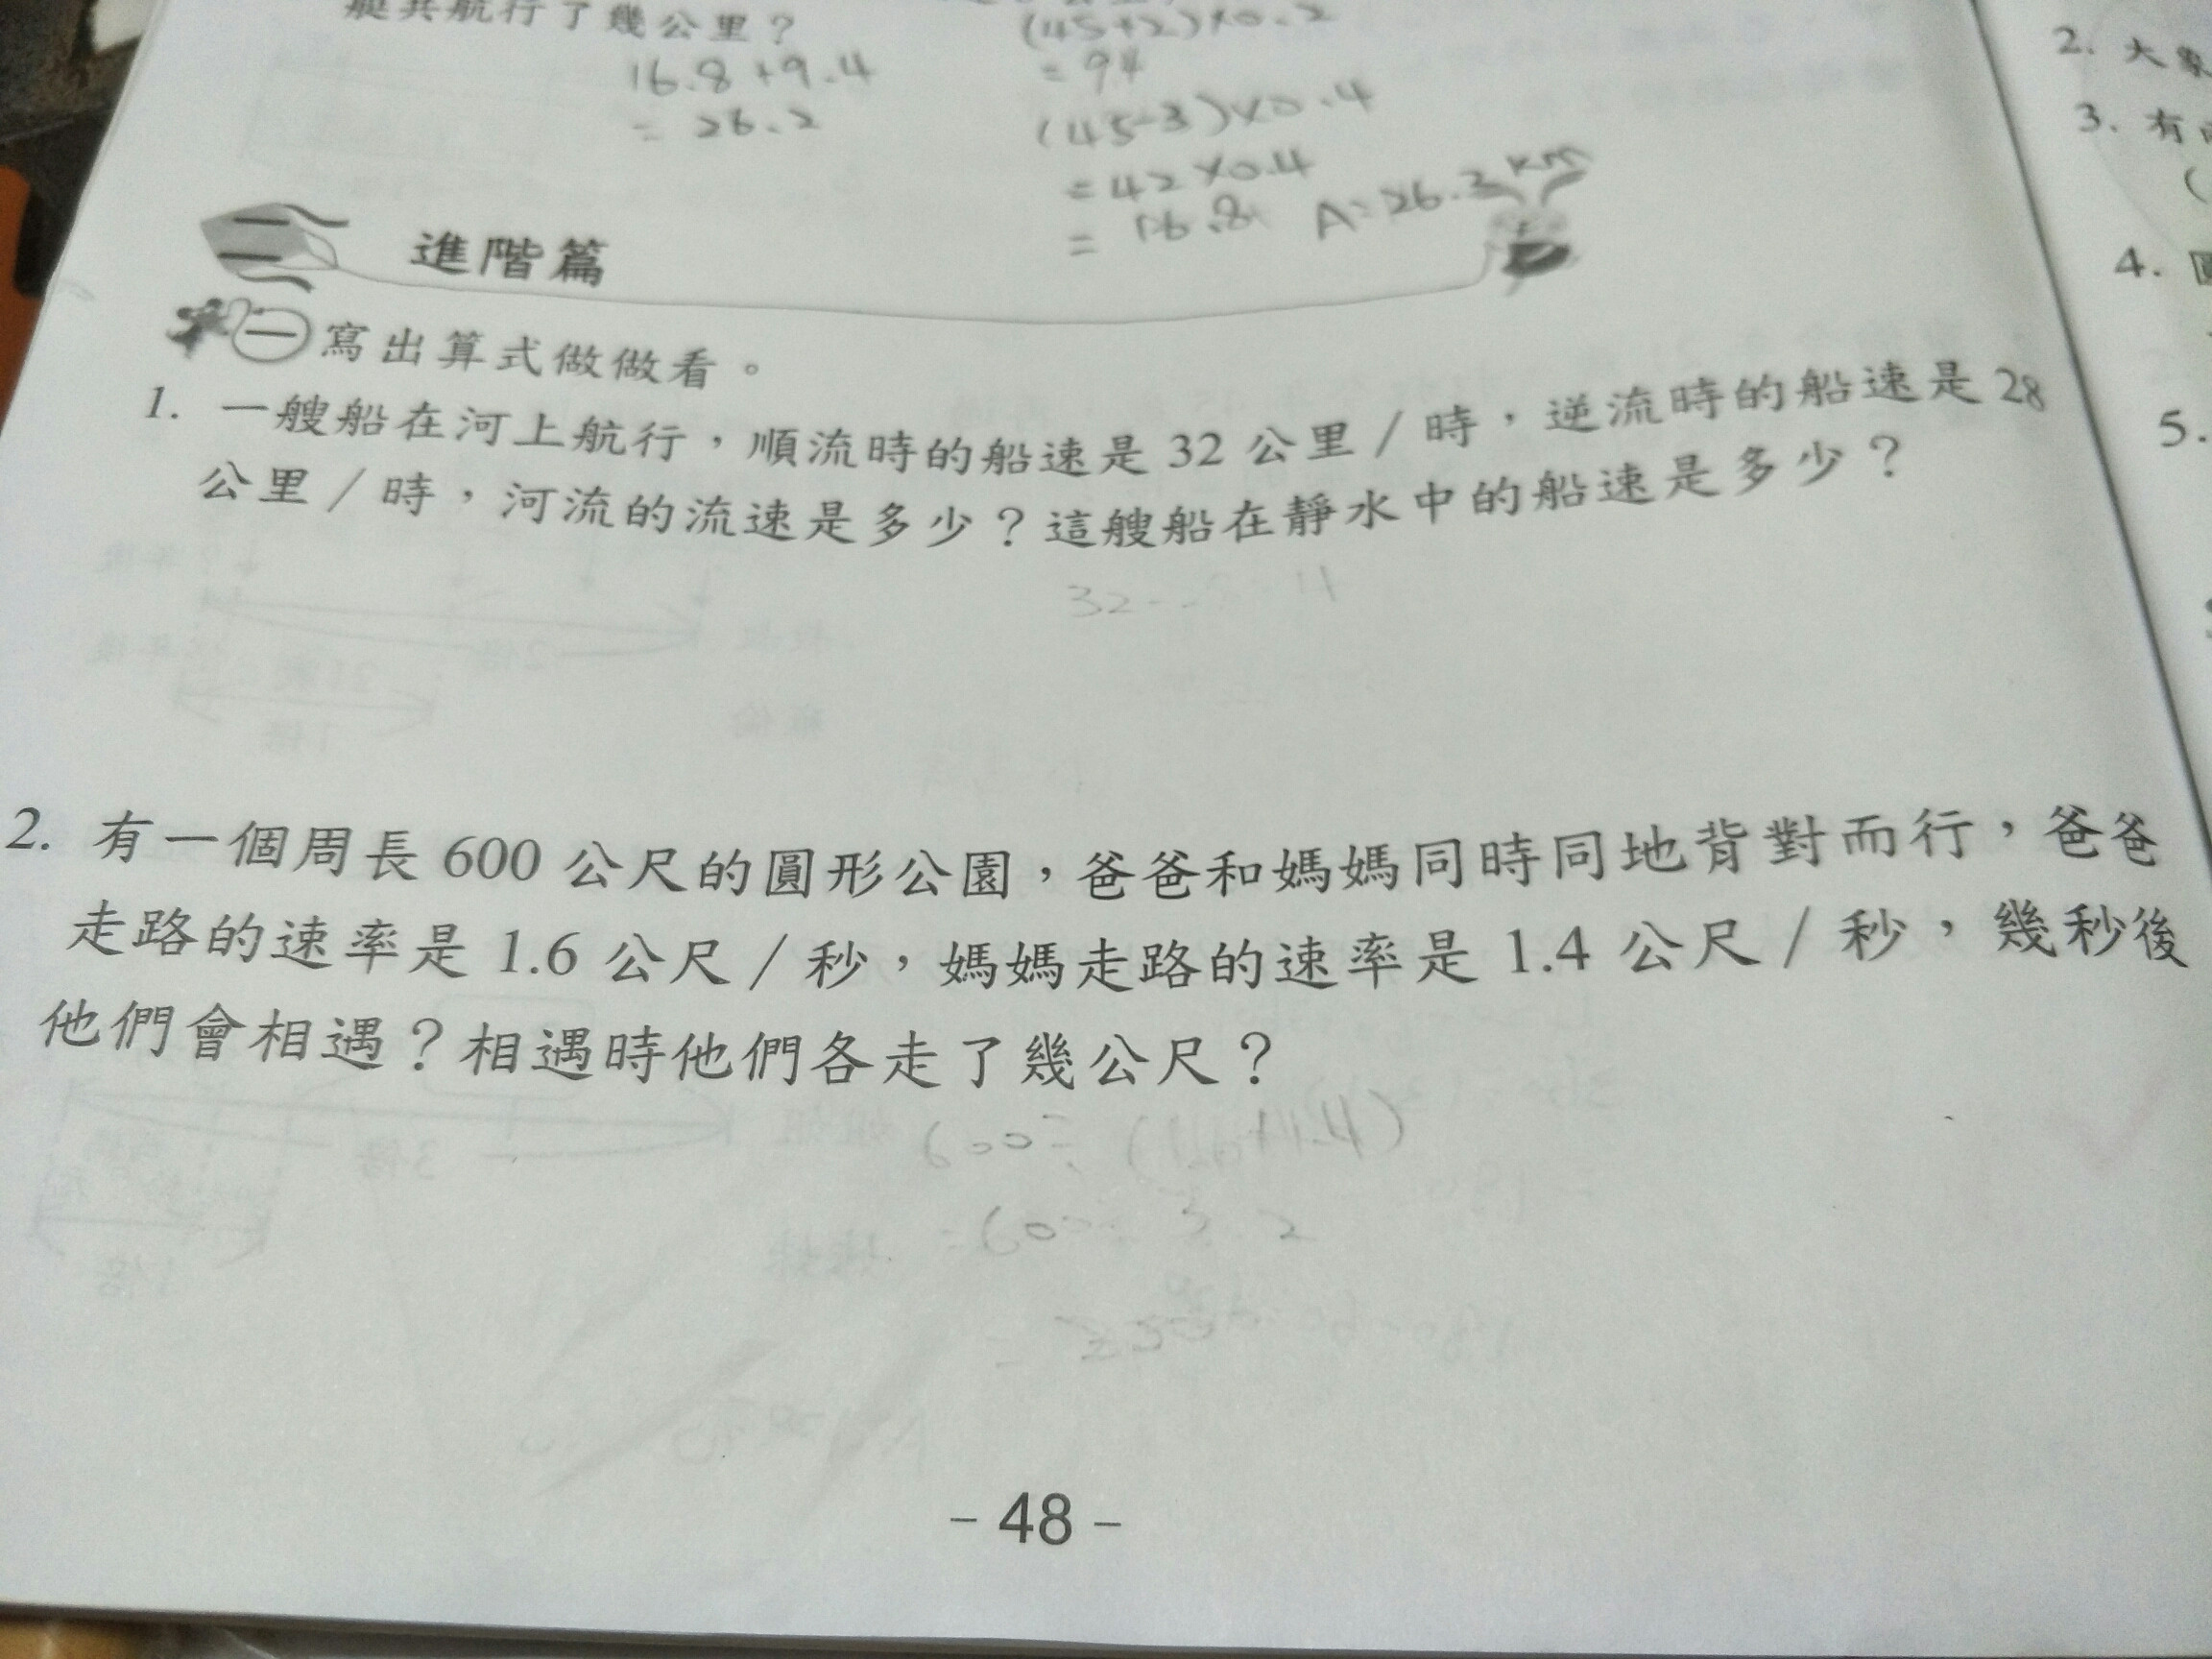 艇共航行了幾公里？
(45+2)×0.2
16.8+9.4
= 94
= 26.2
(45-3)×0.4
= 42×0.4
= 16.8
A: 26.2 km
二 進階篇
一 寫出算式做做看。
1. 一艘船在河上航行，順流時的船速是 32 公里/時，逆流時的船速是 28
公里/時，河流的流速是多少？這艘船在靜水中的船速是多少？
32
2. 有一個周長 600 公尺的圓形公園，爸爸和媽媽同時同地背對而行，爸爸
走路的速率是 1.6 公尺/秒，媽媽走路的速率是 1.4 公尺/秒，幾秒後
他們會相遇？相遇時他們各走了幾公尺？
600÷(1.6+1.4)
- 48 -
2. 大象
3. 有
(
4. 圓
5.